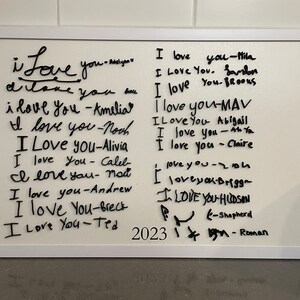 i Love you-Adalynn
I love you
i love you-Amelia
I love you-Noah
I Love you-Alivia
I love you-Caleb
I love you-
I love you-Andrew
I love You-Greta
I Love You-Ted
I love you-Mila
I Love You.
I love you-Brooks
I love you-MAV
I Love You Abigail
I love you-
I love you-Claire
I love you-
I love you-
I LOVE YOU-HUDSON
-Shepherd
-Roman
2023